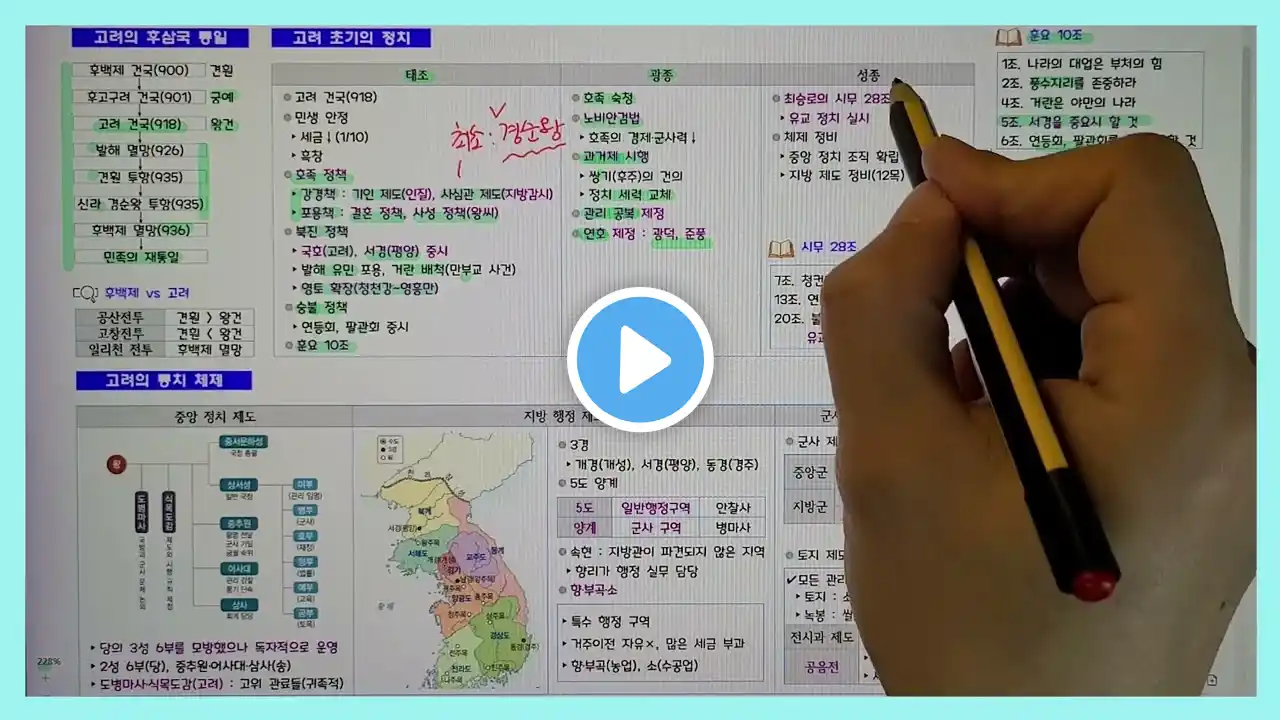 고려의 후삼국 통일
후백제 건국(900) 견훤
후고구려 건국(901) 궁예
고려 건국(918) 왕건
발해 멸망(926)
견훤 투항(935)
신라 경순왕 투항(935)
후백제 멸망(936)
민족의 재통일
후백제 vs 고려
공산전투 견훤 > 왕건
고창전투 견훤 < 왕건
일리천 전투 후백제 멸망
고려 초기의 정치
태조
고려 건국(918)
민생 안정
세금↓(1/10)
흑창
호족 정책
강경책 : 기인 제도(인질), 사심관 제도(지방감시)
포용책 : 결혼 정책, 사성 정책(왕씨)
북진 정책
국호(고려), 서경(평양) 중시
발해 유민 포용, 거란 배척(만부교 사건)
영토 확장(청천강~영흥만)
숭불 정책
연등회, 팔관회 중시
훈요 10조
최초 : 경순왕
광종
호족 숙청
노비안검법
호족의 경제·군사력↓
과거제 시행
쌍기(후주)의 건의
정치 세력 교체
관리 공복 제정
연호 제정 : 광덕, 준풍
성종
최승로의 시무 28조
유교 정치 실시
체제 정비
중앙 정치 조직 확립
지방 제도 정비(12목)
시무 28조
7조. 청컨
13조. 연
20조. 불
유교
훈요 10조
1조. 나라의 대업은 부처의 힘
2조. 풍수지리를 존중하라
4조. 거란은 야만의 나라
5조. 서경을 중요시 할 것
6조. 연등회, 팔관회를 할 것
고려의 통치 체제
중앙 정치 제도
왕
도병마사
국방과 군사 문제 논의
식목도감
제도와 시행 규칙 제정
중서문하성
국정 총괄
상서성
일반 국정
중추원
왕명 전달
군사 기밀
궁궐 숙위
어사대
관리 감찰
풍기 단속
삼사
회계 담당
이부
(관리 임명)
병부
(군사)
호부
(재정)
형부
(법률)
예부
(교육)
공부
(토목)
당의 3성 6부를 모방했으나 독자적으로 운영
2성 6부(당), 중추원·어사대·삼사(송)
도병마사·식목도감(고려) : 고위 관료들(귀족적)
지방 행정 제
북계
서경(평양)
황주목
서해도
교주도
동계
경기
양광도
충주목
청주목
상주목
경상도
동경(경주)
전주목
전라도
진주목
나주목
3경
개경(개성), 서경(평양), 동경(경주)
5도 양계
5도 일반행정구역 안찰사
양계 군사 구역 병마사
속현 : 지방관이 파견되지 않은 지역
향리가 행정 실무 담당
향·부곡·소
특수 행정 구역
거주이전 자유×, 많은 세금 부과
향·부곡(농업), 소(수공업)
군사
군사 제
중앙군
지방군
토지 제도
✔모든 관리
토지 : 소
녹봉 : 쌀
전시과 제도
공음전
228%